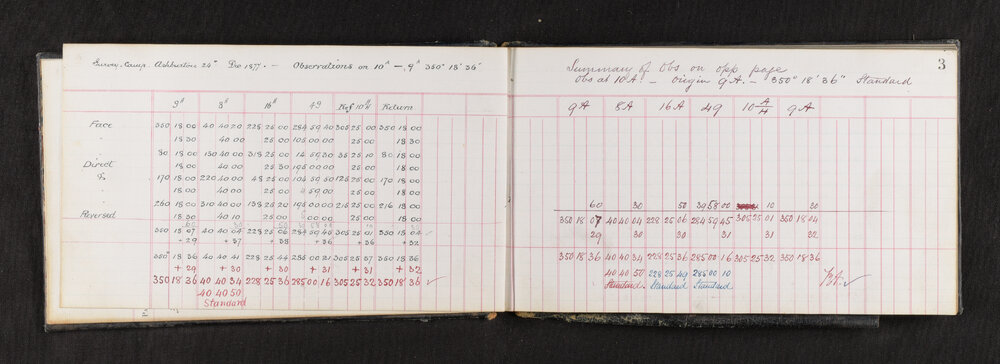 Survey Camp Ashburton 24th Dec 1877. — Observations on 10A — 9A 350° 18' 36"
9A 8A 16A 49 Ref 10 A/H Return
Face 350 18 00 40 40 20 228 25 00 284 59 40 305 25 00 350 18 00
" 18 30 40 00 25 00 105 00 00 25 00 18 30
" 80 18 00 130 40 00 318 25 00 14 59 30 35 25 10 80 18 00
Direct 18 00 40 00 25 30 195 00 00 25 00 18 00
& 170 18 00 220 40 00 48 25 00 104 59 50 125 25 00 170 18 00
" 18 00 40 00 25 00 4 59 00 25 00 18 00
" 260 18 00 310 40 00 138 25 20 195 00 00 215 25 00 216 18 00
Reversed 18 30 40 10 25 00 00 00 25 00 18 00
350 18 07 40 40 04 228 25 06 284 59 45 305 25 01 350 18 04
+ 29 + 37 + 38 + 36 + 36 + 32
350 18 36 40 40 41 228 25 44 285 00 21 305 25 37 350 18 36
+ 29 + 30 + 30 + 31 + 31 + 32
350 18 36 40 40 34 228 25 36 285 00 16 305 25 32 350 18 36
40 40 50
Standard
3
Summary of Obs on opp page
Obs at 10A. — Origin 9A. — 350° 18' 36" Standard
9A 8A 16A 49 10 A/H 9A
60 30 50 39 58 00 10 30
350 18 07 40 40 04 228 25 06 284 59 45 305 25 01 350 18 04
29 30 30 31 31 32
350 18 36 40 40 34 228 25 36 285 00 16 305 25 32 350 18 36
40 40 50 228 25 49 285 00 10
Standard. Standard Standard